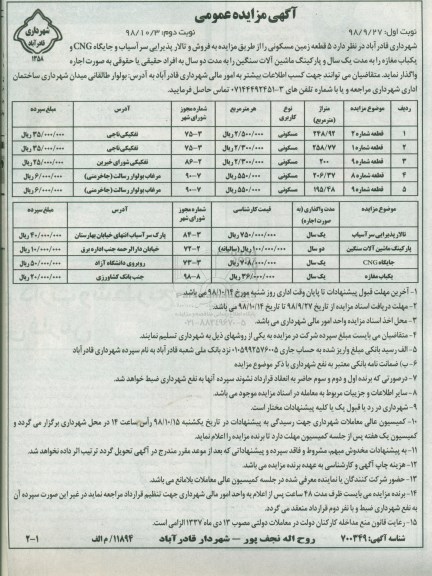 آگهی مزایده عمومی
شهرداری
قادرآباد
۱۳۵۸
نوبت اول: ۹۸/۹/۲۷
نوبت دوم: ۹۸/۱۰/۳
شهرداری قادرآباد در نظر دارد ۵ قطعه زمین مسکونی را از طریق مزایده به فروش و تالار پذیرایی سرآسیاب و جایگاه CNG و
یکباب مغازه را به مدت یک سال و پارکینگ ماشین آلات سنگین را به مدت دو سال به افراد حقیقی یا حقوقی به صورت اجاره
واگذار نماید. متقاضیان می توانند جهت کسب اطلاعات بیشتر به امور مالی شهرداری قادرآباد به آدرس: بولوار طالقانی میدان شهرداری ساختمان
اداری شهرداری مراجعه و یا با شماره تلفن های ۳-۰۷۱۴۴۴۹۲۴۵۱ تماس حاصل فرمایید.
ردیف موضوع مزایده متراژ (مترمربع) نوع کاربری هر مترمربع شماره مجوز شورای شهر آدرس مبلغ سپرده
۱ قطعه شماره ۲ ۲۴۸/۹۲ مسکونی ۲/۵۰۰/۰۰۰ ریال ۷۵-۳ تفکیکی ناجی ۳۵/۰۰۰/۰۰۰ ریال
۲ قطعه شماره ۱ ۲۵۸/۷۷ مسکونی ۲/۳۰۰/۰۰۰ ریال ۷۵-۳ تفکیکی ناجی ۳۵/۰۰۰/۰۰۰ ریال
۳ قطعه شماره ۹ ۲۰۰ مسکونی ۲/۳۰۰/۰۰۰ ریال ۸۶-۲ تفکیکی شورای خیرین ۲۵/۰۰۰/۰۰۰ ریال
۴ قطعه شماره ۸ ۲۰۶/۳۷ مسکونی ۵۵۰/۰۰۰ ریال ۹۰-۷ مرغاب بولوار رسالت (جاخرمنی) ۶/۰۰۰/۰۰۰ ریال
۵ قطعه شماره ۹ ۱۹۵/۴۸ مسکونی ۵۵۰/۰۰۰ ریال ۹۰-۷ مرغاب بولوار رسالت (جاخرمنی) ۶/۰۰۰/۰۰۰ ریال
موضوع مزایده مدت واگذاری (به صورت اجاره) قیمت کارشناسی شماره مجوز شورای شهر آدرس مبلغ سپرده
تالار پذیرایی سرآسیاب یک سال ۷۵۰/۰۰۰/۰۰۰ ریال ۸۴-۳ پارک سرآسیاب انتهای خیابان بهارستان ۴۰/۰۰۰/۰۰۰ ریال
پارکینگ ماشین آلات سنگین دو سال ۱۰۰/۰۰۰/۰۰۰ ریال (سالیانه) ۷۲-۲ خیابان دارالرحمه جنب اداره برق ۱۰/۰۰۰/۰۰۰ ریال
جایگاه CNG یک سال ۷۰۸/۰۰۰/۰۰۰ ریال ۷۳-۳ روبروی دانشگاه آزاد ۵۰/۰۰۰/۰۰۰ ریال
یکباب مغازه یک سال ۳۶/۰۰۰/۰۰۰ ریال ۹۸-۸ جنب بانک کشاورزی ۲۰/۰۰۰/۰۰۰ ریال
۱- آخرین مهلت قبول پیشنهادات تا پایان وقت اداری روز شنبه مورخ ۹۸/۱۰/۱۴ می باشد.
۲- مهلت دریافت اسناد مزایده از تاریخ ۹۸/۹/۲۷ تا تاریخ ۹۸/۱۰/۱۴ می باشد.
۳- محل اخذ اسناد مزایده واحد امور مالی شهرداری می باشد.
۴- متقاضیان می بایست مبلغ سپرده شرکت در مزایده به یکی از روشهای ذیل به شهرداری تسلیم نمایند.
۵- الف رسید بانکی مبلغ واریز شده به حساب جاری ۰۱۰۵۹۹۲۵۷۶۰۰۵ نزد بانک ملی شعبه قادرآباد به نام سپرده شهرداری قادرآباد
۶- ب) ضمانت نامه بانکی معتبر به نفع شهرداری با ذکر موضوع مزایده
۷- در صورتی که برنده اول و دوم و سوم حاضر به انعقاد قرارداد نشوند سپرده آنها به نفع شهرداری ضبط خواهد شد.
۸- سایر اطلاعات و جزییات مربوط به معامله در اسناد مزایده موجود می باشد.
۹- شهرداری در رد یا قبول یک یا کلیه پیشنهادات مختار است.
۱۰- کمیسیون عالی معاملات شهرداری جهت رسیدگی به پیشنهادات در تاریخ یکشنبه ۹۸/۱۰/۱۵ رأس ساعت ۱۴ در محل شهرداری برگزار می گردد و
کمیسیون یک هفته پس از جلسه کمیسیون مهلت دارد تا برنده مزایده را اعلام نماید.
۱۱- به پیشنهادات مخدوش مبهم، مشروط و فاقد سپرده و پیشنهاداتی که بعد از موعد مقرر مندرج در آگهی تحویل گردد ترتیب اثر داده نخواهد شد.
۱۲- هزینه چاپ آگهی و کارشناسی به عهده برنده مزایده می باشد.
۱۳- حضور شرکت کنندگان یا نماینده معرفی شده در جلسه کمیسیون عالی معاملات بلامانع می باشد.
۱۴- برنده مزایده می بایست ظرف مدت ۴۸ ساعت پس از اعلام به واحد امور مالی شهرداری جهت تنظیم قرارداد مراجعه نماید در غیر این صورت سپرده آن
به نفع شهرداری ضبط و با نفر دوم قرارداد منعقد می گردد.
۱۵- رعایت قانون منع مداخله کارکنان دولت در معاملات دولتی مصوب ۱۳ دی ماه ۱۳۳۷ الزامی است.
شناسه آگهی: ۷۰۰۳۴۹ روح اله نجف پور – شهردار قادرآباد ۱۱۸۹۴/ م الف ۲-۱